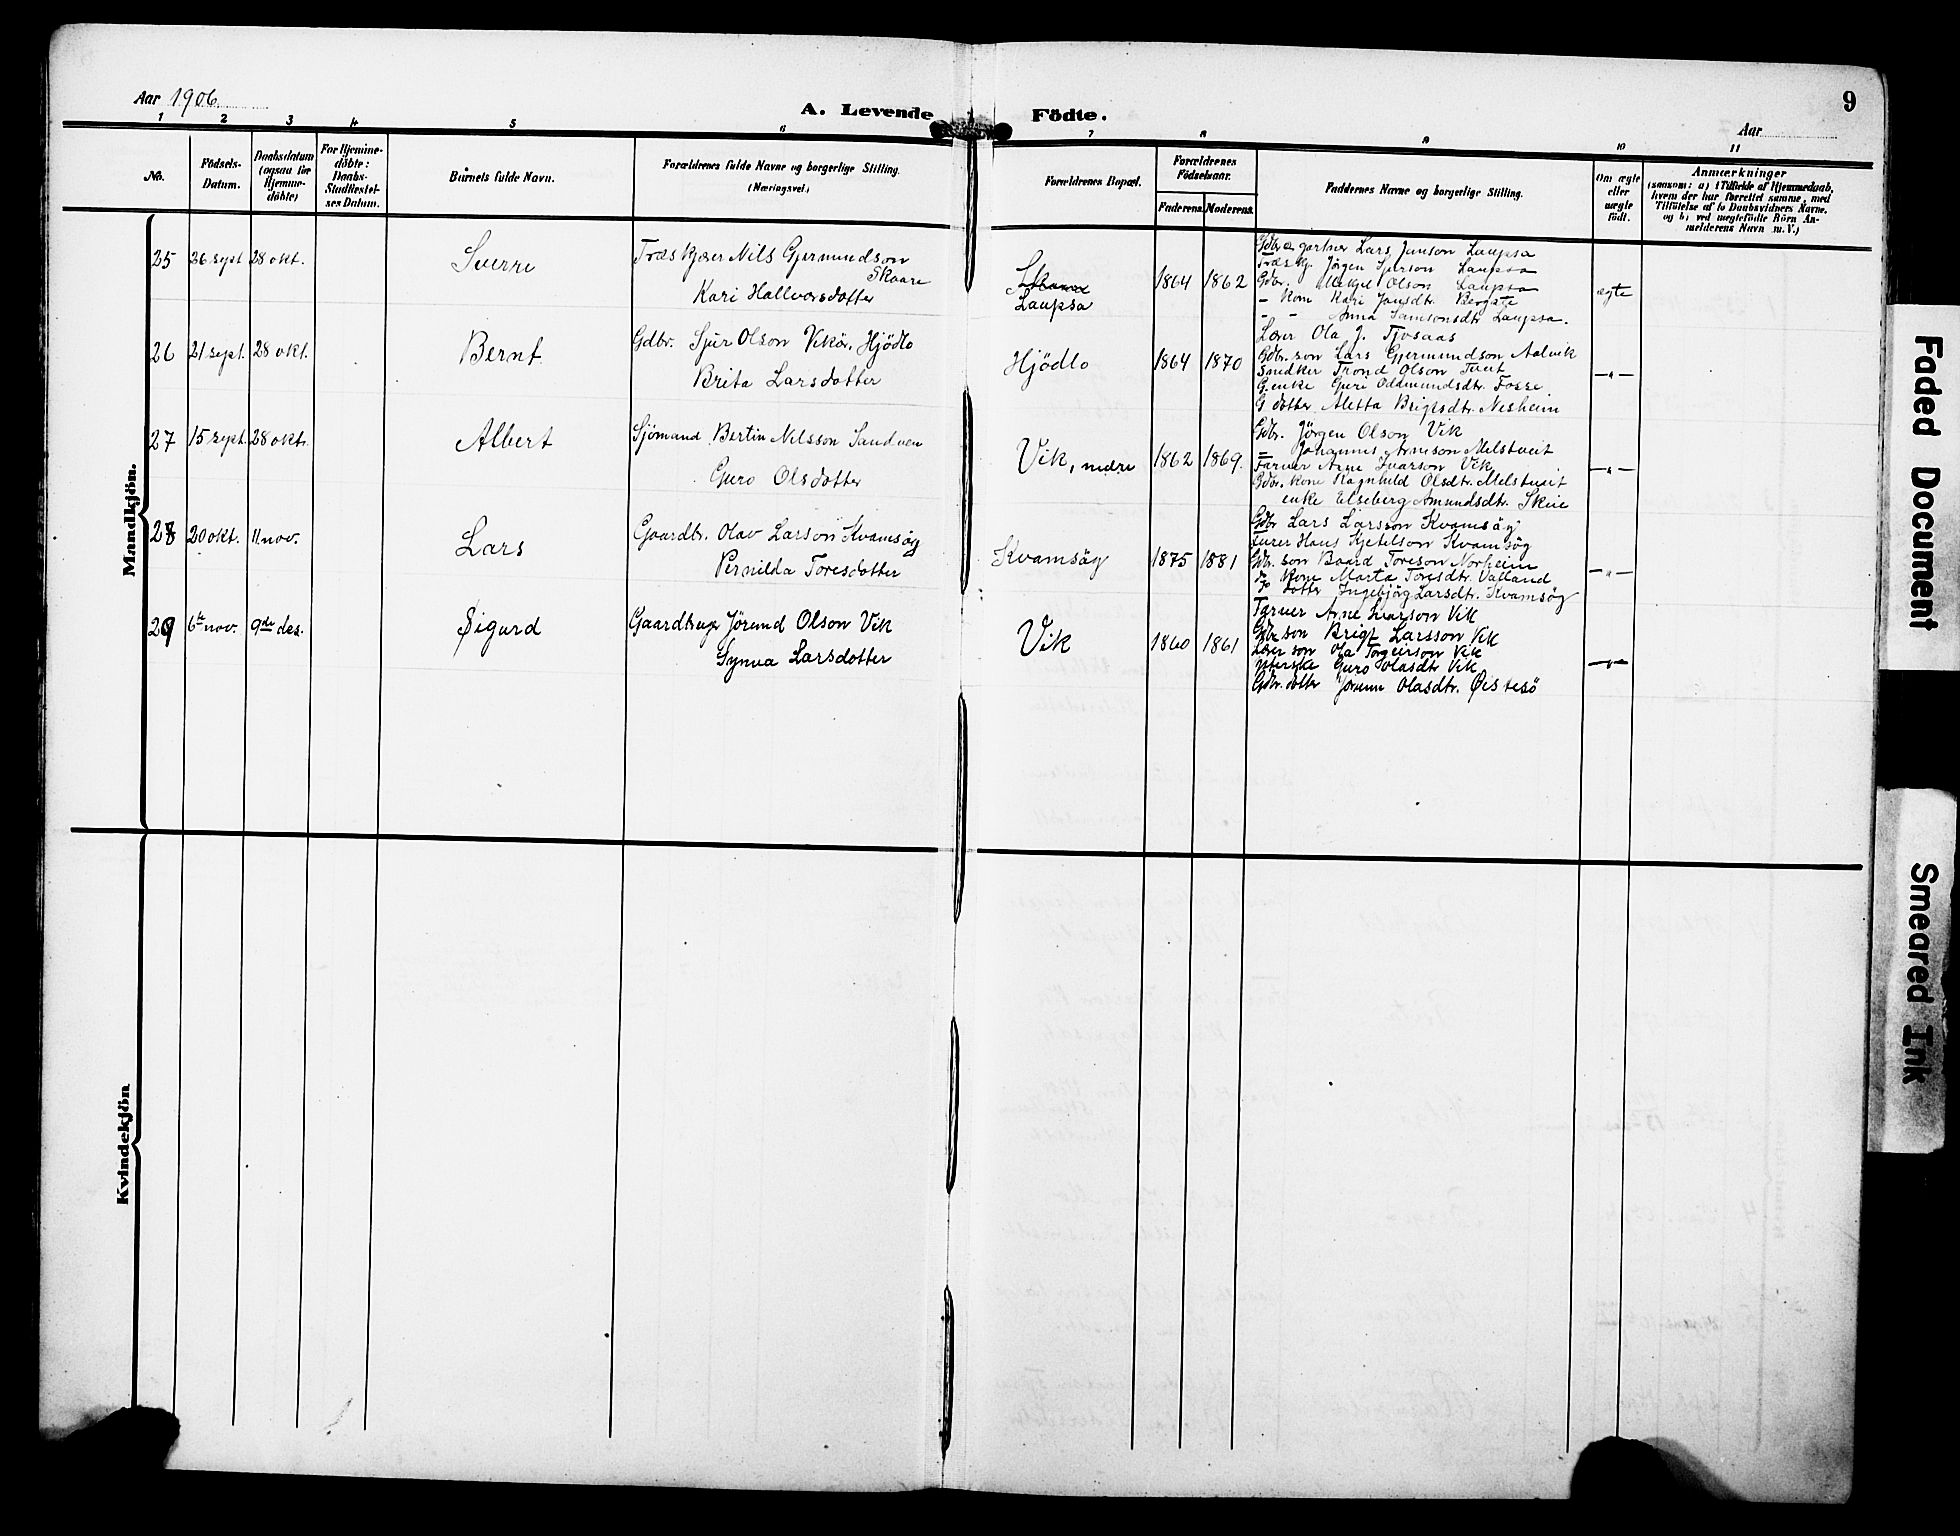 Aar 1906
A. Levende Födte.
9
Aar
1 2 3 4 5 6 7 8 9 10 11
No.
Födsels-
Datum.
Daabsdatum
(ogsaa for
Hjemme-
döbte)
For Hjemme-
döbte:
Daabs-
Stadfæstel-
ses Datum.
Barnets fulde Navn.
Forældrenes fulde Navne og borgerlige Stilling.
(Næringsvei.)
Forældrenes Bopæl.
Forældrenes
Födselsaar.
Faderens. Moderens.
Faddernes Navne og borgerlige Stilling.
Om ægte
eller
uægte
födt.
Anmærkninger
(saasom: a) i Tilfælde af Hjemmedaab,
hvem der har forrettet samme, med
Tilföielse af to Daabsvidners Navne,
og b) ved uægtefödte Börn An-
melderens Navn m. V.)
Mandkjön.
25 26 sept 28 okt. Sverre
Træskjær Nils Gjermundson
Skaare
Kari Hallvorsdotter
Laupsa
1864 1862
Gdbr. og gartner Lars Jonson Laupsa
Træskj. Jörgen Sjurson Laupsa
Gdbr. Mikjel Olson Laupsa
- kone Kari Jonsdtr. Bergate
- - Anna Samsonsdtr Laupsa.
ægte
26 21 sept. 28 okt. Bernt
Gdbr. Sjur Olson Vikör, Hjödlo
Brita Larsdotter
Hjödlo
1864 1870
Lærer Ola J. Tjosaas
Gdbr. son Lars Gjermundson Aalvik
Snedker Trond Olson Tveit
G. enke Guri Oddmundsdtr. Fosse
G dotter Aletta Brigtsdtr. Nesheim
—"—
27 15 sept. 28 okt. Albert
Sjömand Bertin Nilsson Sandven
Guro Olsdotter
Vik, nedre
1862 1869.
Gdbr. Jörgen Olson Vik
= Johannes Arneson Melstveit
Farver Arne Ivarson Vik
Gdbr. kone Ragnhild Olsdtr. Melstveit
enke Elseberg Amundsdtr. Skeie
—"—
28 20 okt. 11. nov. Lars
Gaardbr. Olav Larson Kvamsög
Pernilda Toresdotter
Kvamsög
1875 1881
Gdbr Lars Larsson Kvamsög
Furer Hans Kjetelson Kvamsög
Gdbr. son Baard Toreson Norheim
do kone Marta Toresdtr. Valland
do dotter Ingebjörg Larsdtr. Kvamsög
—"—
29 6te nov. 9de des. Sigurd
Gaardbruger Jörund Olson Vik
Synva Larsdotter
Vik
1860 1861
Farver Arne Ivarson Vik
Gdbr son Brigt Larsson Vik
Lærer son Ola Torgeirson Vik
Guro Olasdtr Vik
Gdbr. dotter Jorunn Olasdtr. Øistesö
—"—
Kvindekjön
Faded Document
Smeared Ink